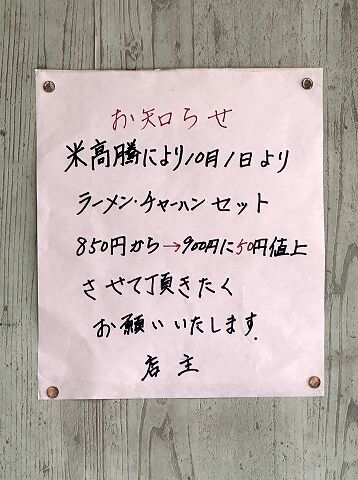 お知らせ
米高騰により10月1日より
ラーメン・チャーハンセット
850円から→900円に50円値上
させて頂きたく
お願いいたします.
店主